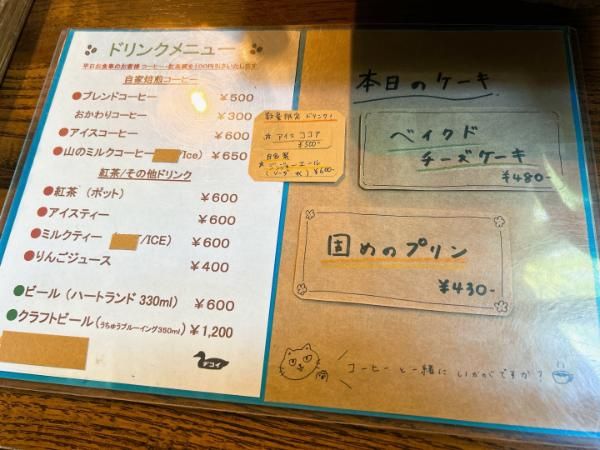 ドリンクメニュー
平日お食事のお客様 コーヒー・飲み物を100円引きいたします
自家焙煎コーヒー
●ブレンドコーヒー ￥500
おかわりコーヒー ￥300
●アイスコーヒー ￥600
●山のミルクコーヒー /Ice) ￥650
紅茶/その他ドリンク
●紅茶（ポット） ￥600
●アイスティー ￥600
●ミルクティー /ICE) ￥600
●りんごジュース ￥400
●ビール（ハートランド 330ml） ￥600
●クラフトビール(うちゅうブルーイング350ml) ￥1,200
デコイ
数量限定 ドリンク!
☆ アイス ココア
￥500-
自家製
☆ ジンジャーエール
(ソーダ 水) ￥600-
本日のケーキ
ベイクド
チーズケーキ
￥480-
固めのプリン
￥430-
コーヒーと一緒に いかがですか？